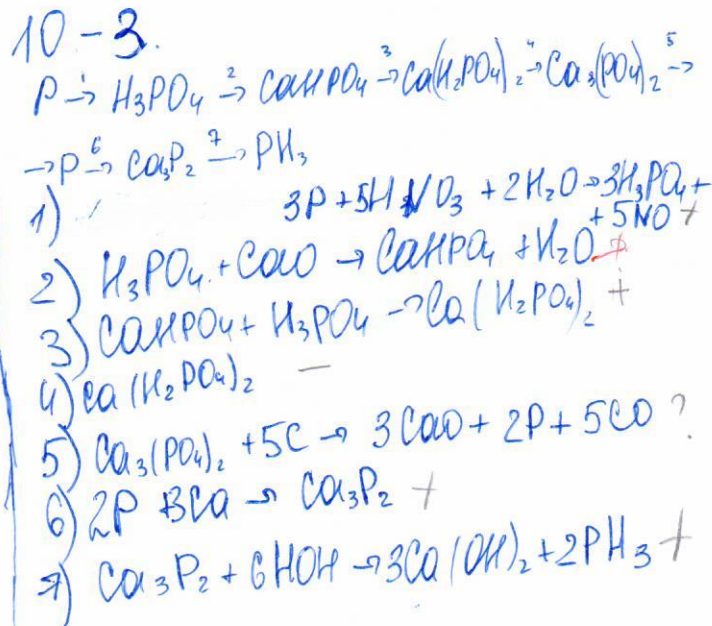 10-3.
P →¹ H₃PO₄ →² CaHPO₄ →³ Ca(H₂PO₄)₂ →⁴ Ca₃(PO₄)₂ →⁵
→ P →⁶ Ca₃P₂ →⁷ PH₃
1) 3P + 5HNO₃ + 2H₂O → 3H₃PO₄ +
+ 5NO +
2) H₃PO₄ + CaO → CaHPO₄ + H₂O +
3) CaHPO₄ + H₃PO₄ → Ca(H₂PO₄)₂ +
4) Ca(H₂PO₄)₂ —
5) Ca₃(PO₄)₂ + 5C → 3CaO + 2P + 5CO ?
6) 2P + 3Ca → Ca₃P₂ +
7) Ca₃P₂ + 6HOH → 3Ca(OH)₂ + 2PH₃ +